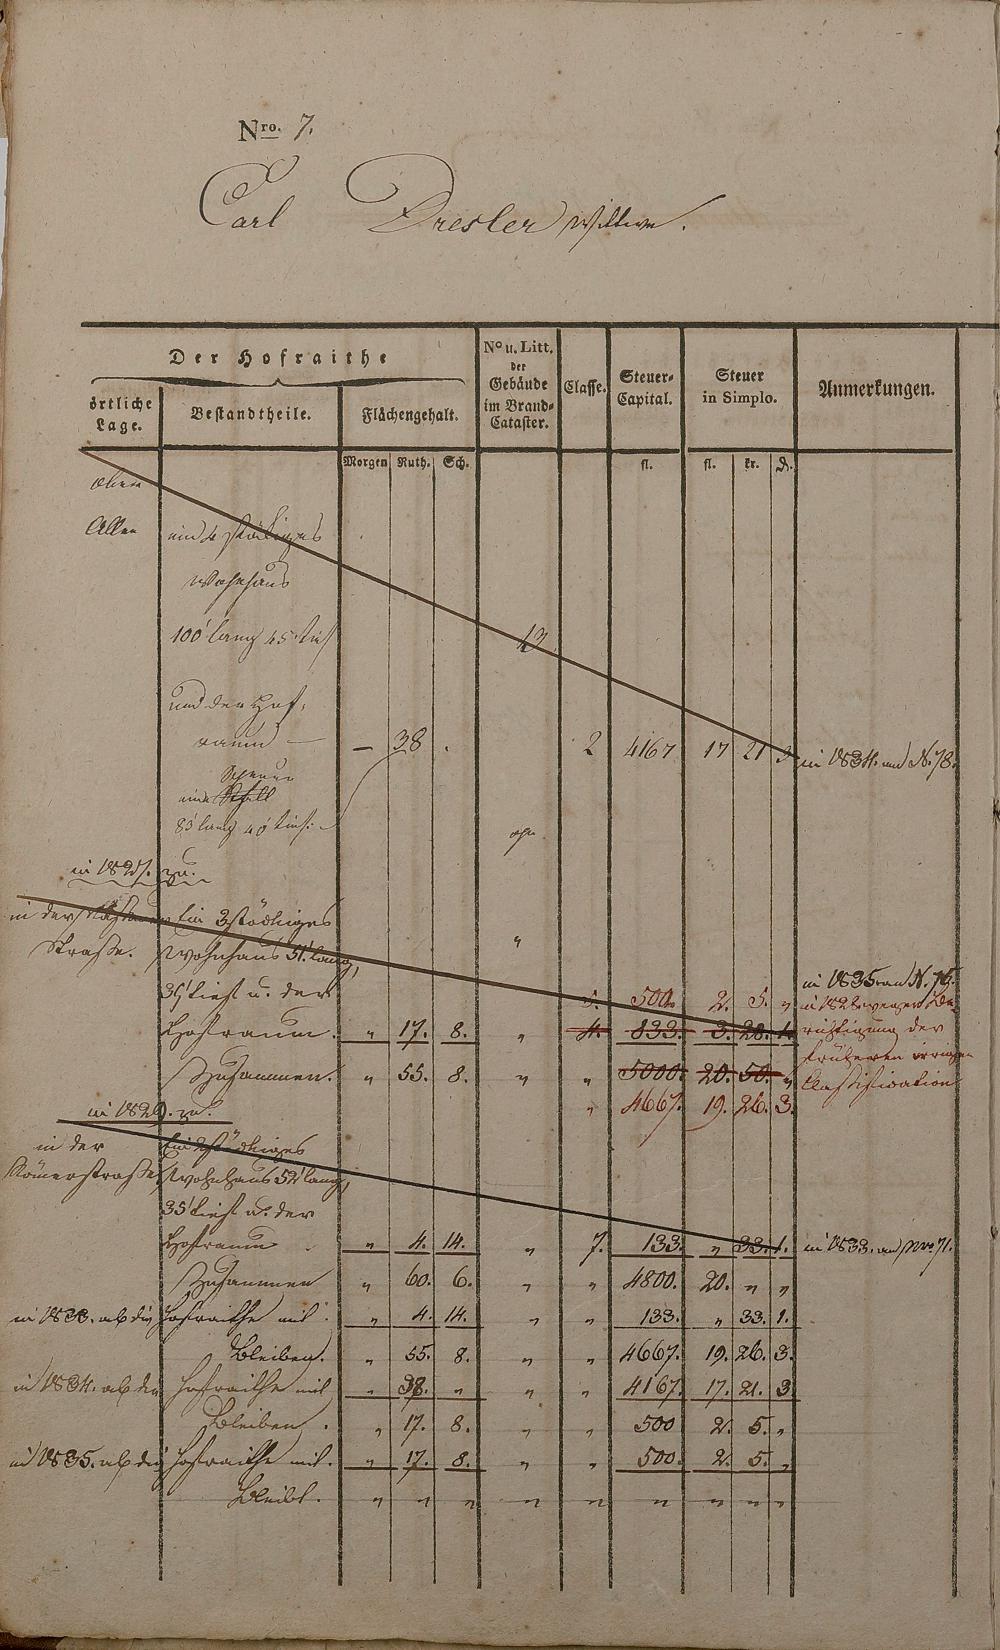 Nro. 7.
Carl Dresler Wittwe.
Der Hofraithe
No u. Litt. der Gebäude im Brand-Cataster.
Classe.
Steuer-Capital.
Steuer in Simplo.
Anmerkungen.
örtliche Lage.
Bestandtheile.
Flächengehalt.
Morgen Ruth. Sch. fl. fl. kr. d.
oben
Allee ein 4 stöckiges
Wohnhaus
100' lang 45' tief 13
und der Hof-
raum — — 38 . 2 4167 17 21 3 in 1834. an N. 78.
Scheuer
eine Stall
83' lang 40' tief:
in 182 . zu.
in der Ein 3 stöckiges "
Straße. Wohnhaus 51' lang, in 1835 an N. 75.
39' tief u. der 5. 500. 2. 5. " in 1828 wegen Be-
Hofraum. " 17. 8. " 4. 833. 3. 28. 1. richtigung der
früheren irrigen
Zusammen. " 55. 8. " " 5000. 20. 50. " Classification
" 4667. 19. 26. 3.
in 1829. zu.
in der Ein 2 stöckiges
Römerstraße Wohnhaus 52' lang,
35' tief u. der
Hofraum " 4. 14. " 7. 133 " 33. 1. in 1833. an Nro. 71.
Zusammen " 60. 6. " " 4800. 20. " "
in 1833. ab die Hofraithe mit " 4. 14. " " 133. " 33. 1.
Bleiben. " 55. 8. " " 4667. 19. 26. 3.
in 1834. ab die Hofraithe mit " 38. " " " 4167. 17. 21. 3
Bleiben. " 17. 8. " " 500 2. 5. "
in 1835. ab die Hofraithe mit. " 17. 8. " " 500. 2. 5. "
Bleibt. " " " " " " " " "